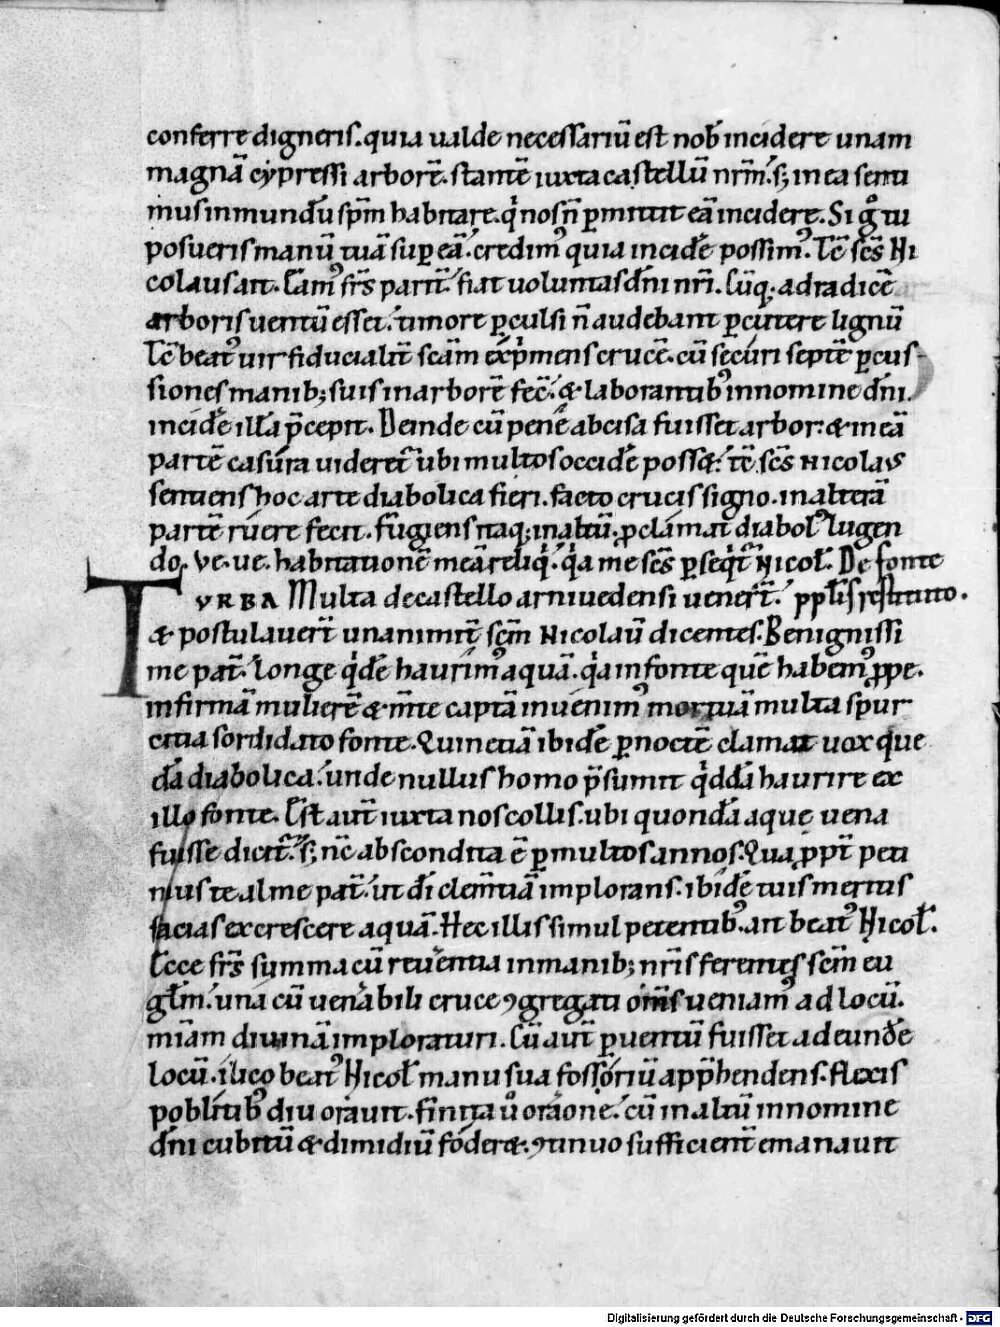 conferre digneris. quia ualde necessariū est nob̄ incidere unam
magnā cẏpressi arborē. stantē iuxta castellū nr̄m. s; in ea senti
mus inmundū sp̄m habitare. q̇ nos n̄ ꝑmittit eā incidere. Si gͦ tu
posueris manū tuā suꝑ eā. credimꝰ quia incid̄e possimꝰ. Tc̄ sc̄s Ni
colaus ait. Eamꝰ fr̄s parit̄. fiat uoluntas dn̄i nr̄i. Cūq; ad radicē
arboris uentū esset. timore ꝑculsi n̄ audebant ꝑcutere lignū
Tc̄ beatꝰ uir fiducialit̄ sc̄am exp̄mens crucē. cū secūri septē ꝑcus-
siones manib; suis in arborē fec̄. & laborantibꝰ in nomine dn̄i.
incid̄e illā p̄cepit. Deinde cū pene abcisa fuisset arbor. & in eā
partē casura uideret̄ ubi multos occid̄e poss&. tc̄ sc̄s Nicolaus
sentiens hoc arte diabolica fieri. facto crucis signo. in alterā
partē ruere fecit. fugiens itaq; in altū. ꝓclamat diabolꝰ lugen
do. ve. ue. habitationē meā reliq̇. q̇a me sc̄s ꝑseq̇t̄ Nicol̄. De fonte
TVRBA Multa de castello arniuedensi uener̄t. pp̄lis restituto.
& postulauer̄t unanimit̄ sc̄m Nicolaū dicentes. Benignissi
me pat̄. Longe q̇de haurimꝰ aquā. q̇a in fonte quē habemꝰ ꝓpe.
infirmā mulierē & m̄te captā inuenimꝰ mortuā multa spur
citia sordidato fonte. Quin etiā ibid̄e ꝑnoctē clamat uox que
dā diabolica. unde nullus homo p̄sumit q̇ddā haurire ex
illo fonte. Est aut̄ iuxta nos collis. ubi quondā aque uena
fuisse dicit̄. s; nc̄ abscondita ē ꝑ multos annos. Qua ꝓpt̄ peti
mus te alme pat̄. ut dī clem̄tiā implorans. ibid̄e tuis meritis
facias excrescere aquā. Hec illis simul petentibꝰ. ait beatꝰ Nicol̄.
Ecce fr̄s summa cū reuerentia in manib; nr̄is ferentes sc̄m eu
gl̄m. una cū uenerabili cruce ꝯgregati om̄s ueniamꝰ ad locū.
mīam diuinā imploraturi. Cū aut̄ ꝑuentū fuisset ad eund̄e
locū. ilico beatꝰ Nicol̄ manu sua fossoriū app̄hendens. flexis
poblitibꝰ diu orauit. finita u̇ or̄aone. cū in altū in nomine
dn̄i cubitū & dimidiū foder&. ꝯtinuo sufficient̄ emanauit